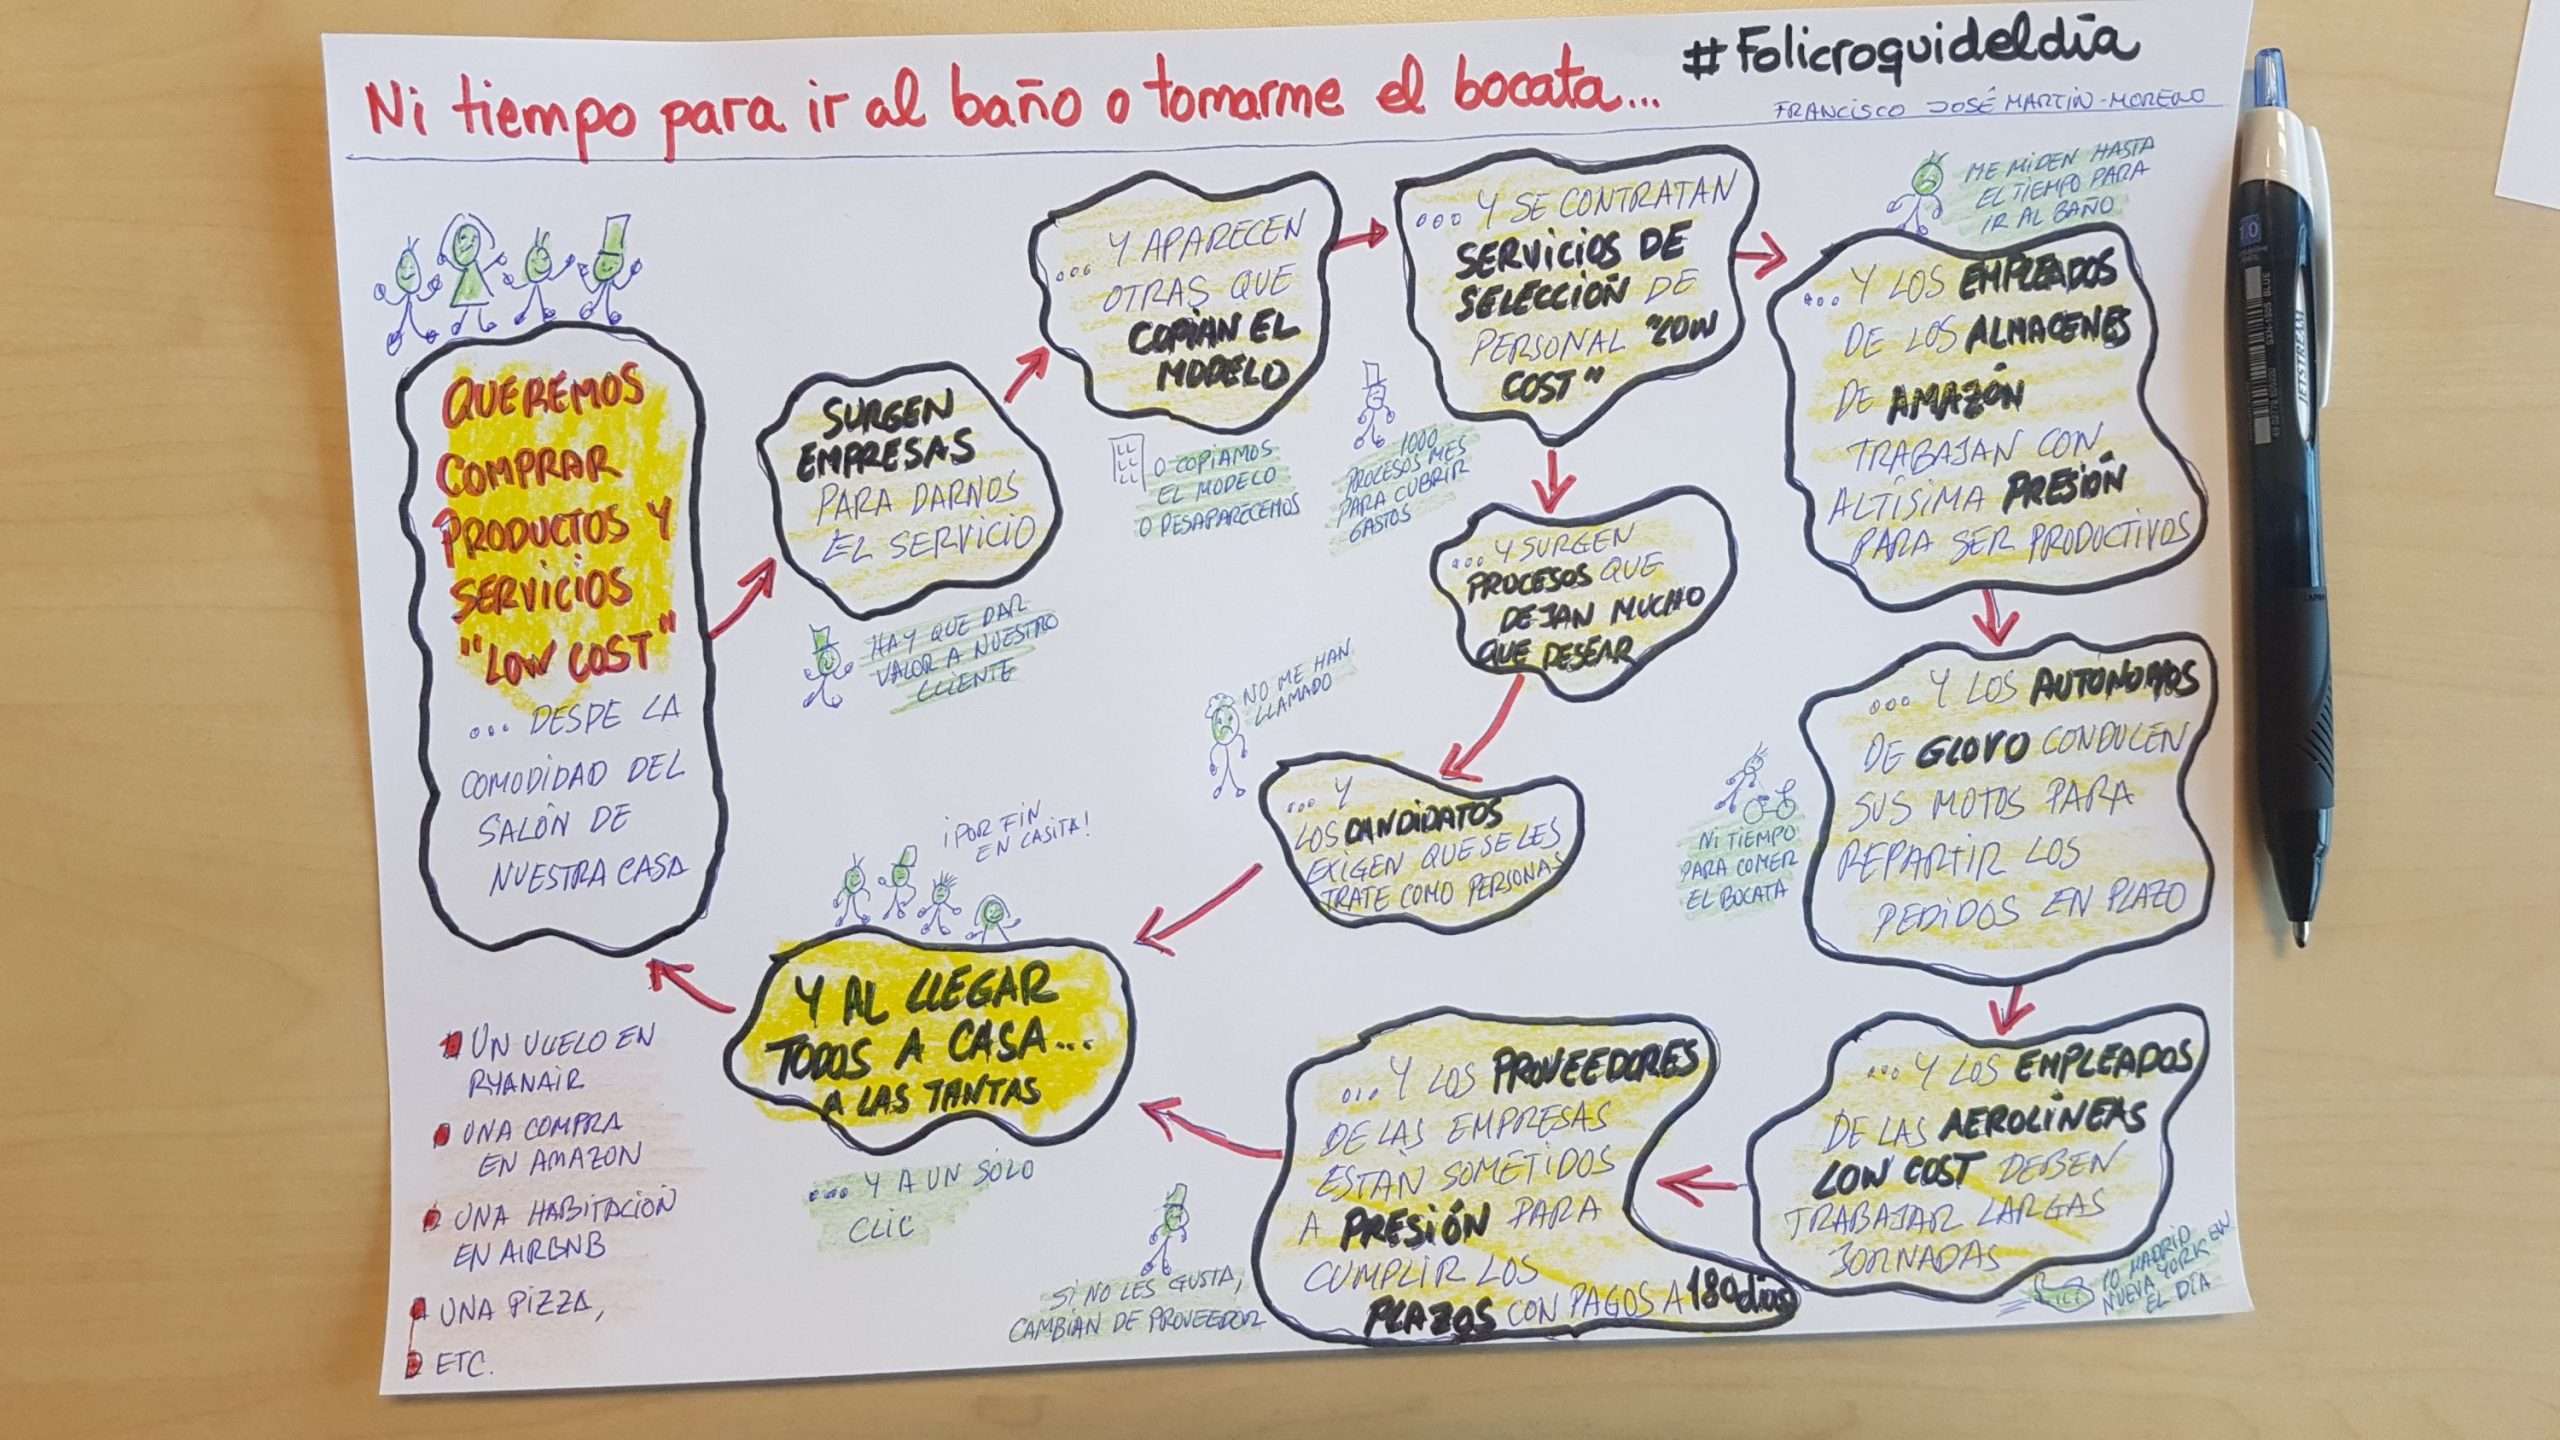 Ni tiempo para ir al baño o tomarme el bocata...
#Folicroquideldía
FRANCISCO JOSÉ MARTIN-MORENO
QUEREMOS
COMPRAR
PRODUCTOS Y
SERVICIOS
"LOW COST"
... DESDE LA
COMODIDAD DEL
SALÓN DE
NUESTRA CASA
SURGEN
EMPRESAS
PARA DARNOS
EL SERVICIO
HAY QUE DAR
VALOR A NUESTRO
CLIENTE
... Y APARECEN
OTRAS QUE
COPIAN EL
MODELO
O COPIAMOS
EL MODELO
O DESAPARECEMOS
... Y SE CONTRATAN
SERVICIOS DE
SELECCIÓN DE
PERSONAL "LOW
COST"
1000
PROCESOS MES
PARA CUBRIR
GASTOS
ME MIDEN HASTA
EL TIEMPO PARA
IR AL BAÑO
... Y LOS EMPLEADOS
DE LOS ALMACENES
DE AMAZÓN
TRABAJAN CON
ALTÍSIMA PRESIÓN
PARA SER PRODUCTIVOS
... Y SURGEN
PROCESOS QUE
DEJAN MUCHO
QUE DESEAR
NO ME HAN
LLAMADO
... Y
LOS CANDIDATOS
EXIGEN QUE SE LES
TRATE COMO PERSONAS
... Y LOS AUTÓNOMOS
DE GLOVO CONDUCEN
SUS MOTOS PARA
REPARTIR LOS
PEDIDOS EN PLAZO
NI TIEMPO
PARA COMER
EL BOCATA
... Y LOS EMPLEADOS
DE LAS AEROLÍNEAS
LOW COST DEBEN
TRABAJAR LARGAS
JORNADAS
10 MADRID
NUEVA YORK EN
EL DÍA
... Y LOS PROVEEDORES
DE LAS EMPRESAS
ESTÁN SOMETIDOS
A PRESIÓN PARA
CUMPLIR LOS
PLAZOS CON PAGOS A 180 días
SI NO LES GUSTA,
CAMBIAN DE PROVEEDOR
¡POR FIN
EN CASITA!
Y AL LLEGAR
TODOS A CASA...
A LAS TANTAS
... Y A UN SÓLO
CLIC
UN VUELO EN
RYANAIR
UNA COMPRA
EN AMAZON
UNA HABITACIÓN
EN AIRBNB
UNA PIZZA,
ETC.
1.0
JETSTREAM